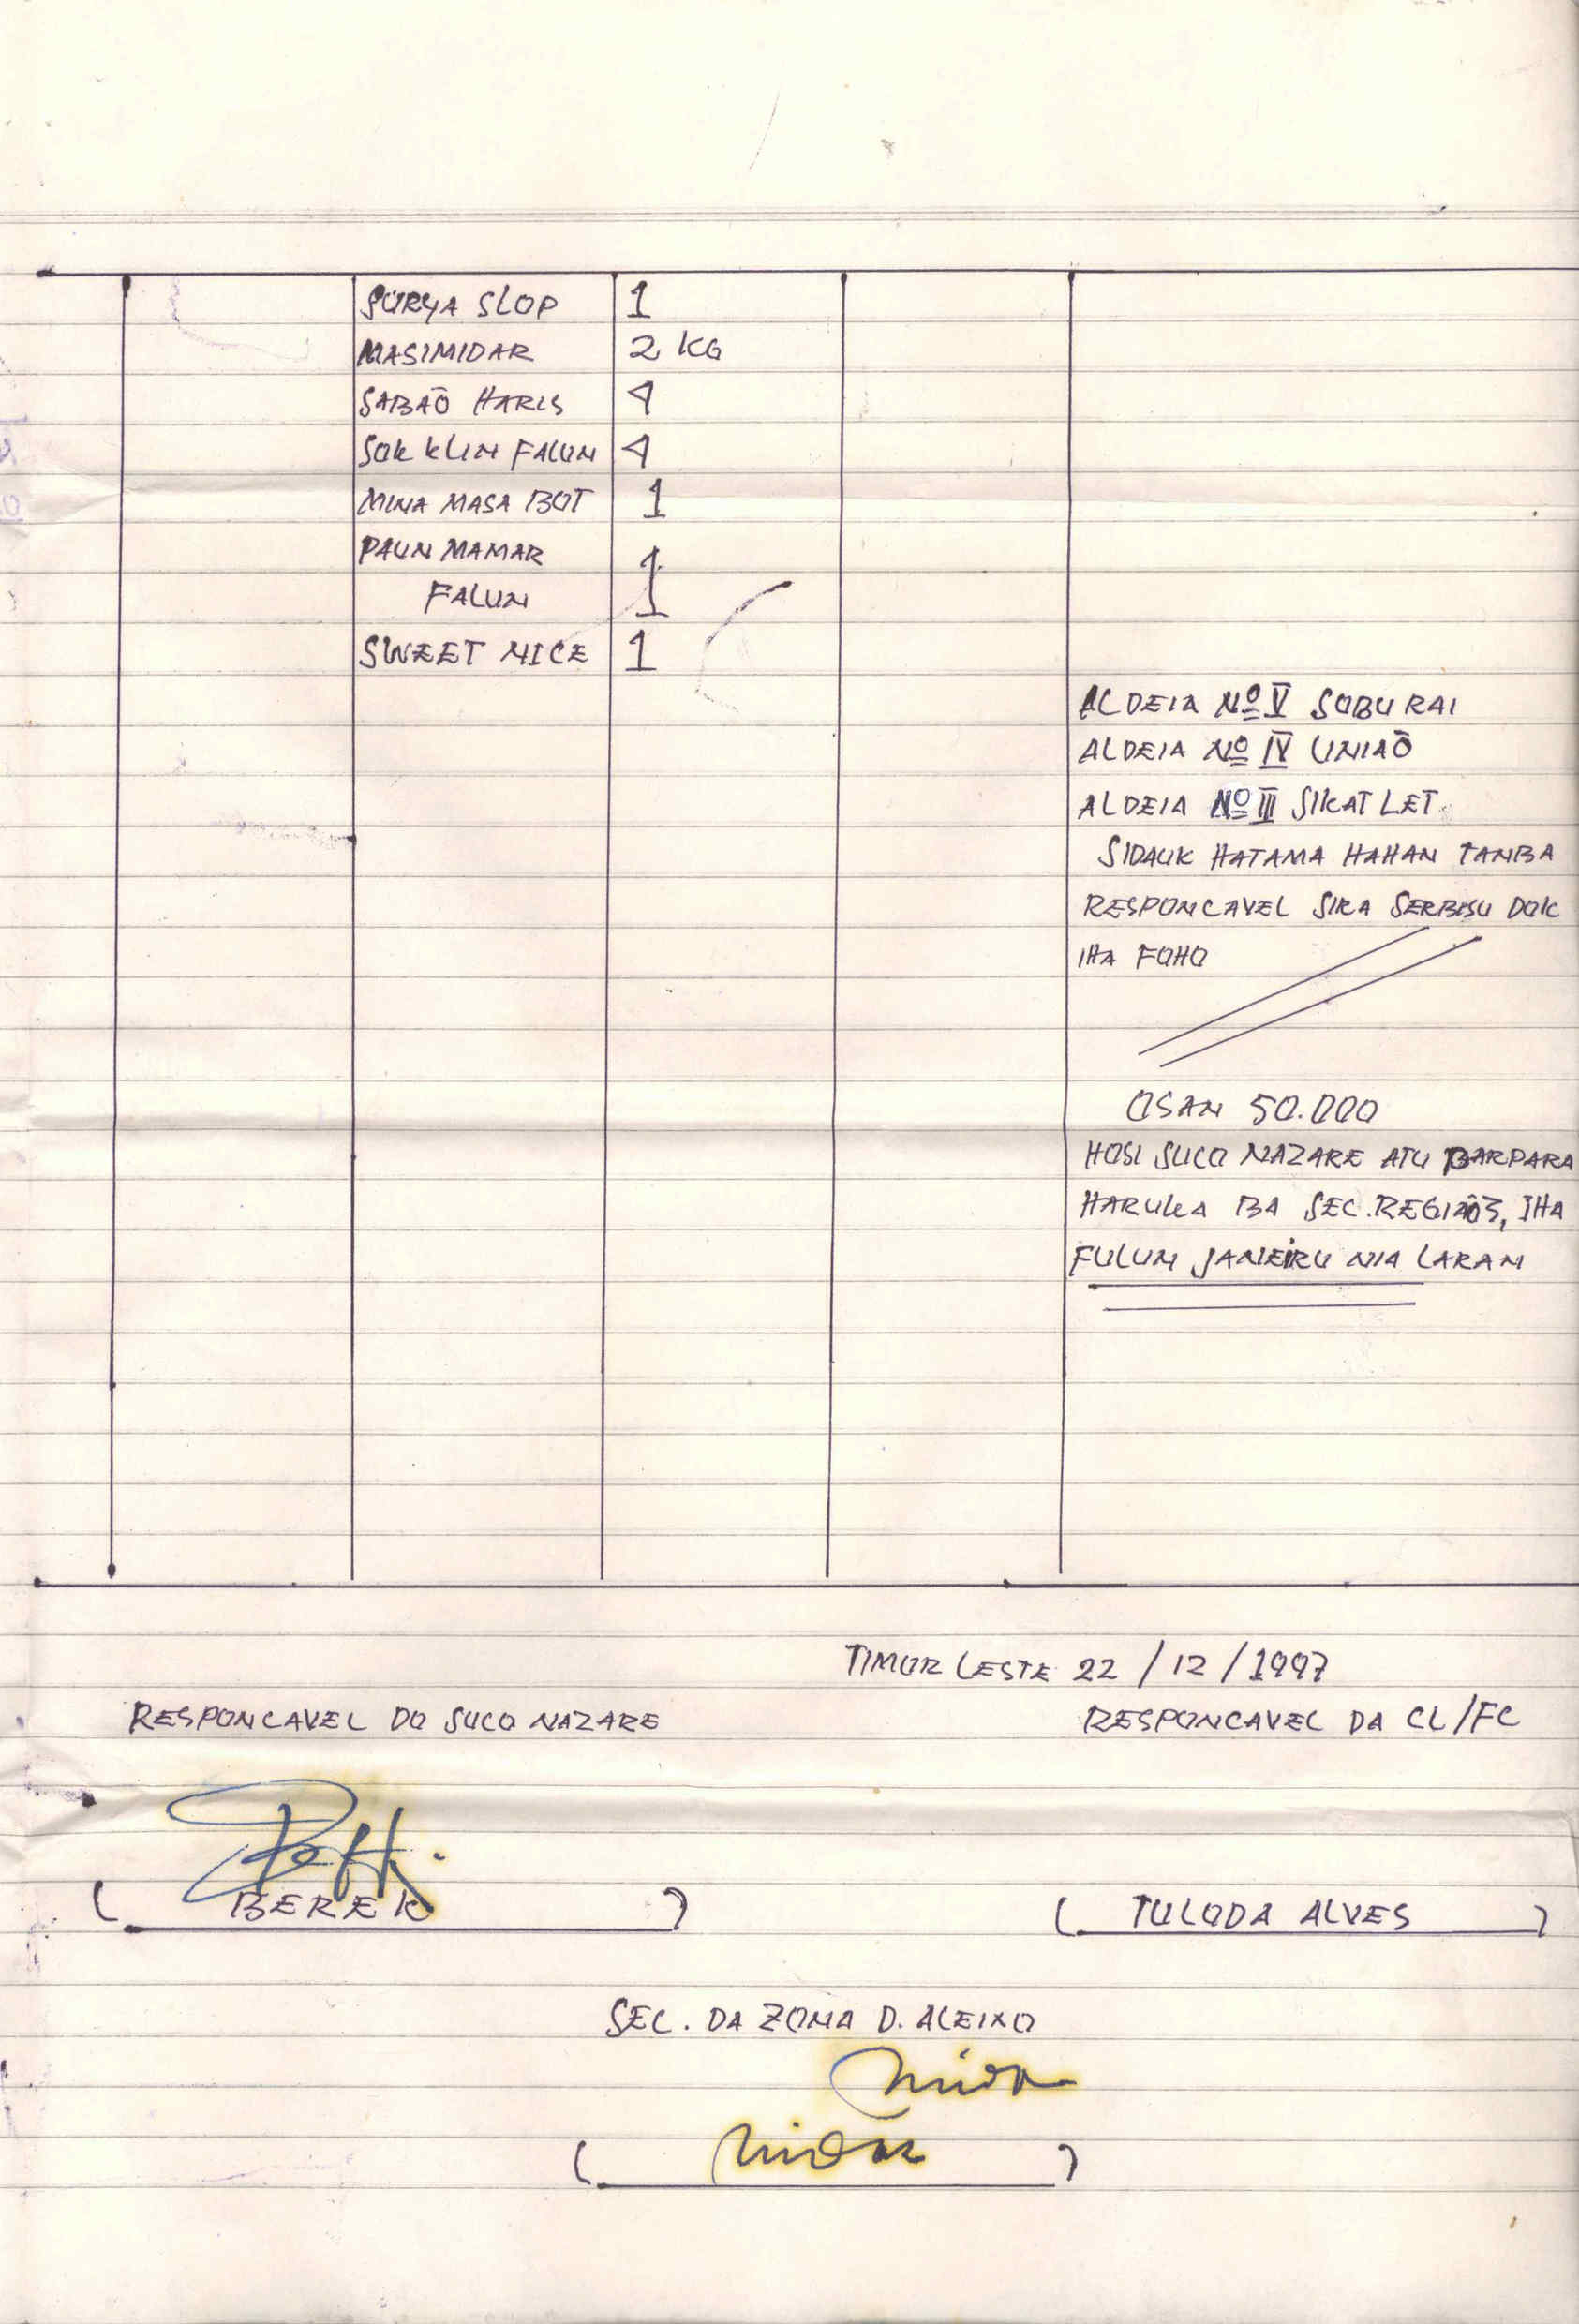 SURYA SLOP 1
MASIMIDAR 2 KG
SABAÕ HARIS 4
SOK KLIN FALUN 4
MINA MASA BOT 1
PAUN MAMAR
FALUN 1
SWEET NICE 1
ALDEIA Nº V SUBU RAI
ALDEIA Nº IV UNIAÕ
ALDEIA Nº III SIKAT LET
SIDAUK HATAMA HAHAN TANBA
RESPONCAVEL SIRA SERBISU DOK
IHA FOHO
OSAN 50.000
HOSI SUCO NAZARE ATU BARPARA
HARUKA BA SEC. REGIAÕ 3, IHA
FULUN JANEIRU NIA LARAN
TIMOR LESTE 22 / 12 / 1997
RESPONCAVEL DO SUCO NAZARE RESPONCAVEL DA CL/FC
( BEREK ) ( TULODA ALVES )
SEC. DA ZONA D. ALEIXO